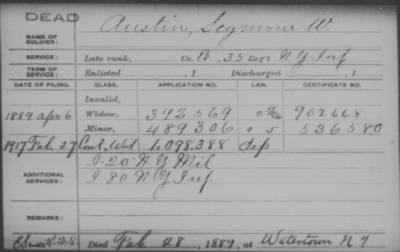 DEAD
NAME OF SOLDIER: Austin, Seymour W.
SERVICE: Late rank, Co. B, 35 Reg't N Y Inf
TERM OF SERVICE: Enlisted , 1 Discharged , 1
DATE OF FILING. CLASS. APPLICATION NO. LAW. CERTIFICATE NO.
Invalid,
1889 Apr 6 Widow, 392569
Minor, 489306 536580
1917 Feb. 27 Cont. Wid 1,098,388 dep
ADDITIONAL SERVICES: I-20 N Y Mil
I 80 N Y Inf.
REMARKS:
Died Feb 28, 1889, at Watertown N Y